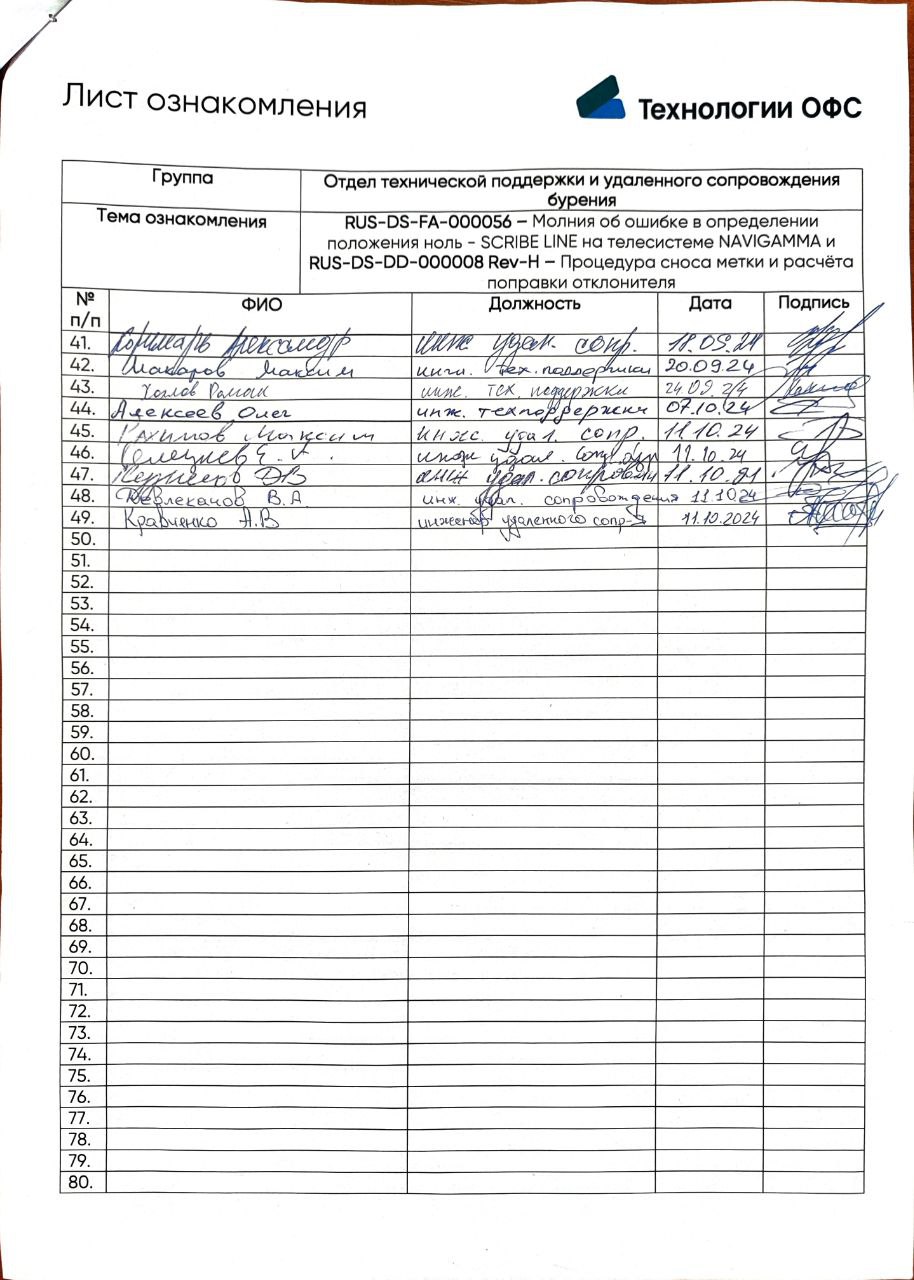 Лист ознакомления
Технологии ОФС
Группа
Отдел технической поддержки и удаленного сопровождения
бурения
Тема ознакомления
RUS-DS-FA-000056 – Молния об ошибке в определении
положения ноль - SCRIBE LINE на телесистеме NAVIGAMMA и
RUS-DS-DD-000008 Rev-H – Процедура сноса метки и расчёта
поправки отклонителя
№ п/п ФИО Должность Дата Подпись
41. Александр инж удал. сопр.
42. Макаров Максим инж. тех. поддержки 20.09.24
43. Роман инж. тех. поддержки 24.09.24
44. Алексеев Олег инж. техподдержки 07.10.24
45. Рахимов Максим инж. удал. сопр. 11.10.24
46. инж удал. 11.10.24
47. инж удал. 11.10.24
48. Девлеканов В.А инж. удал. сопровождения 11.10.24
49. Кравченко А.В инженер удаленного сопр-я 11.10.2024
50.
51.
52.
53.
54.
55.
56.
57.
58.
59.
60.
61.
62.
63.
64.
65.
66.
67.
68.
69.
70.
71.
72.
73.
74.
75.
76.
77.
78.
79.
80.